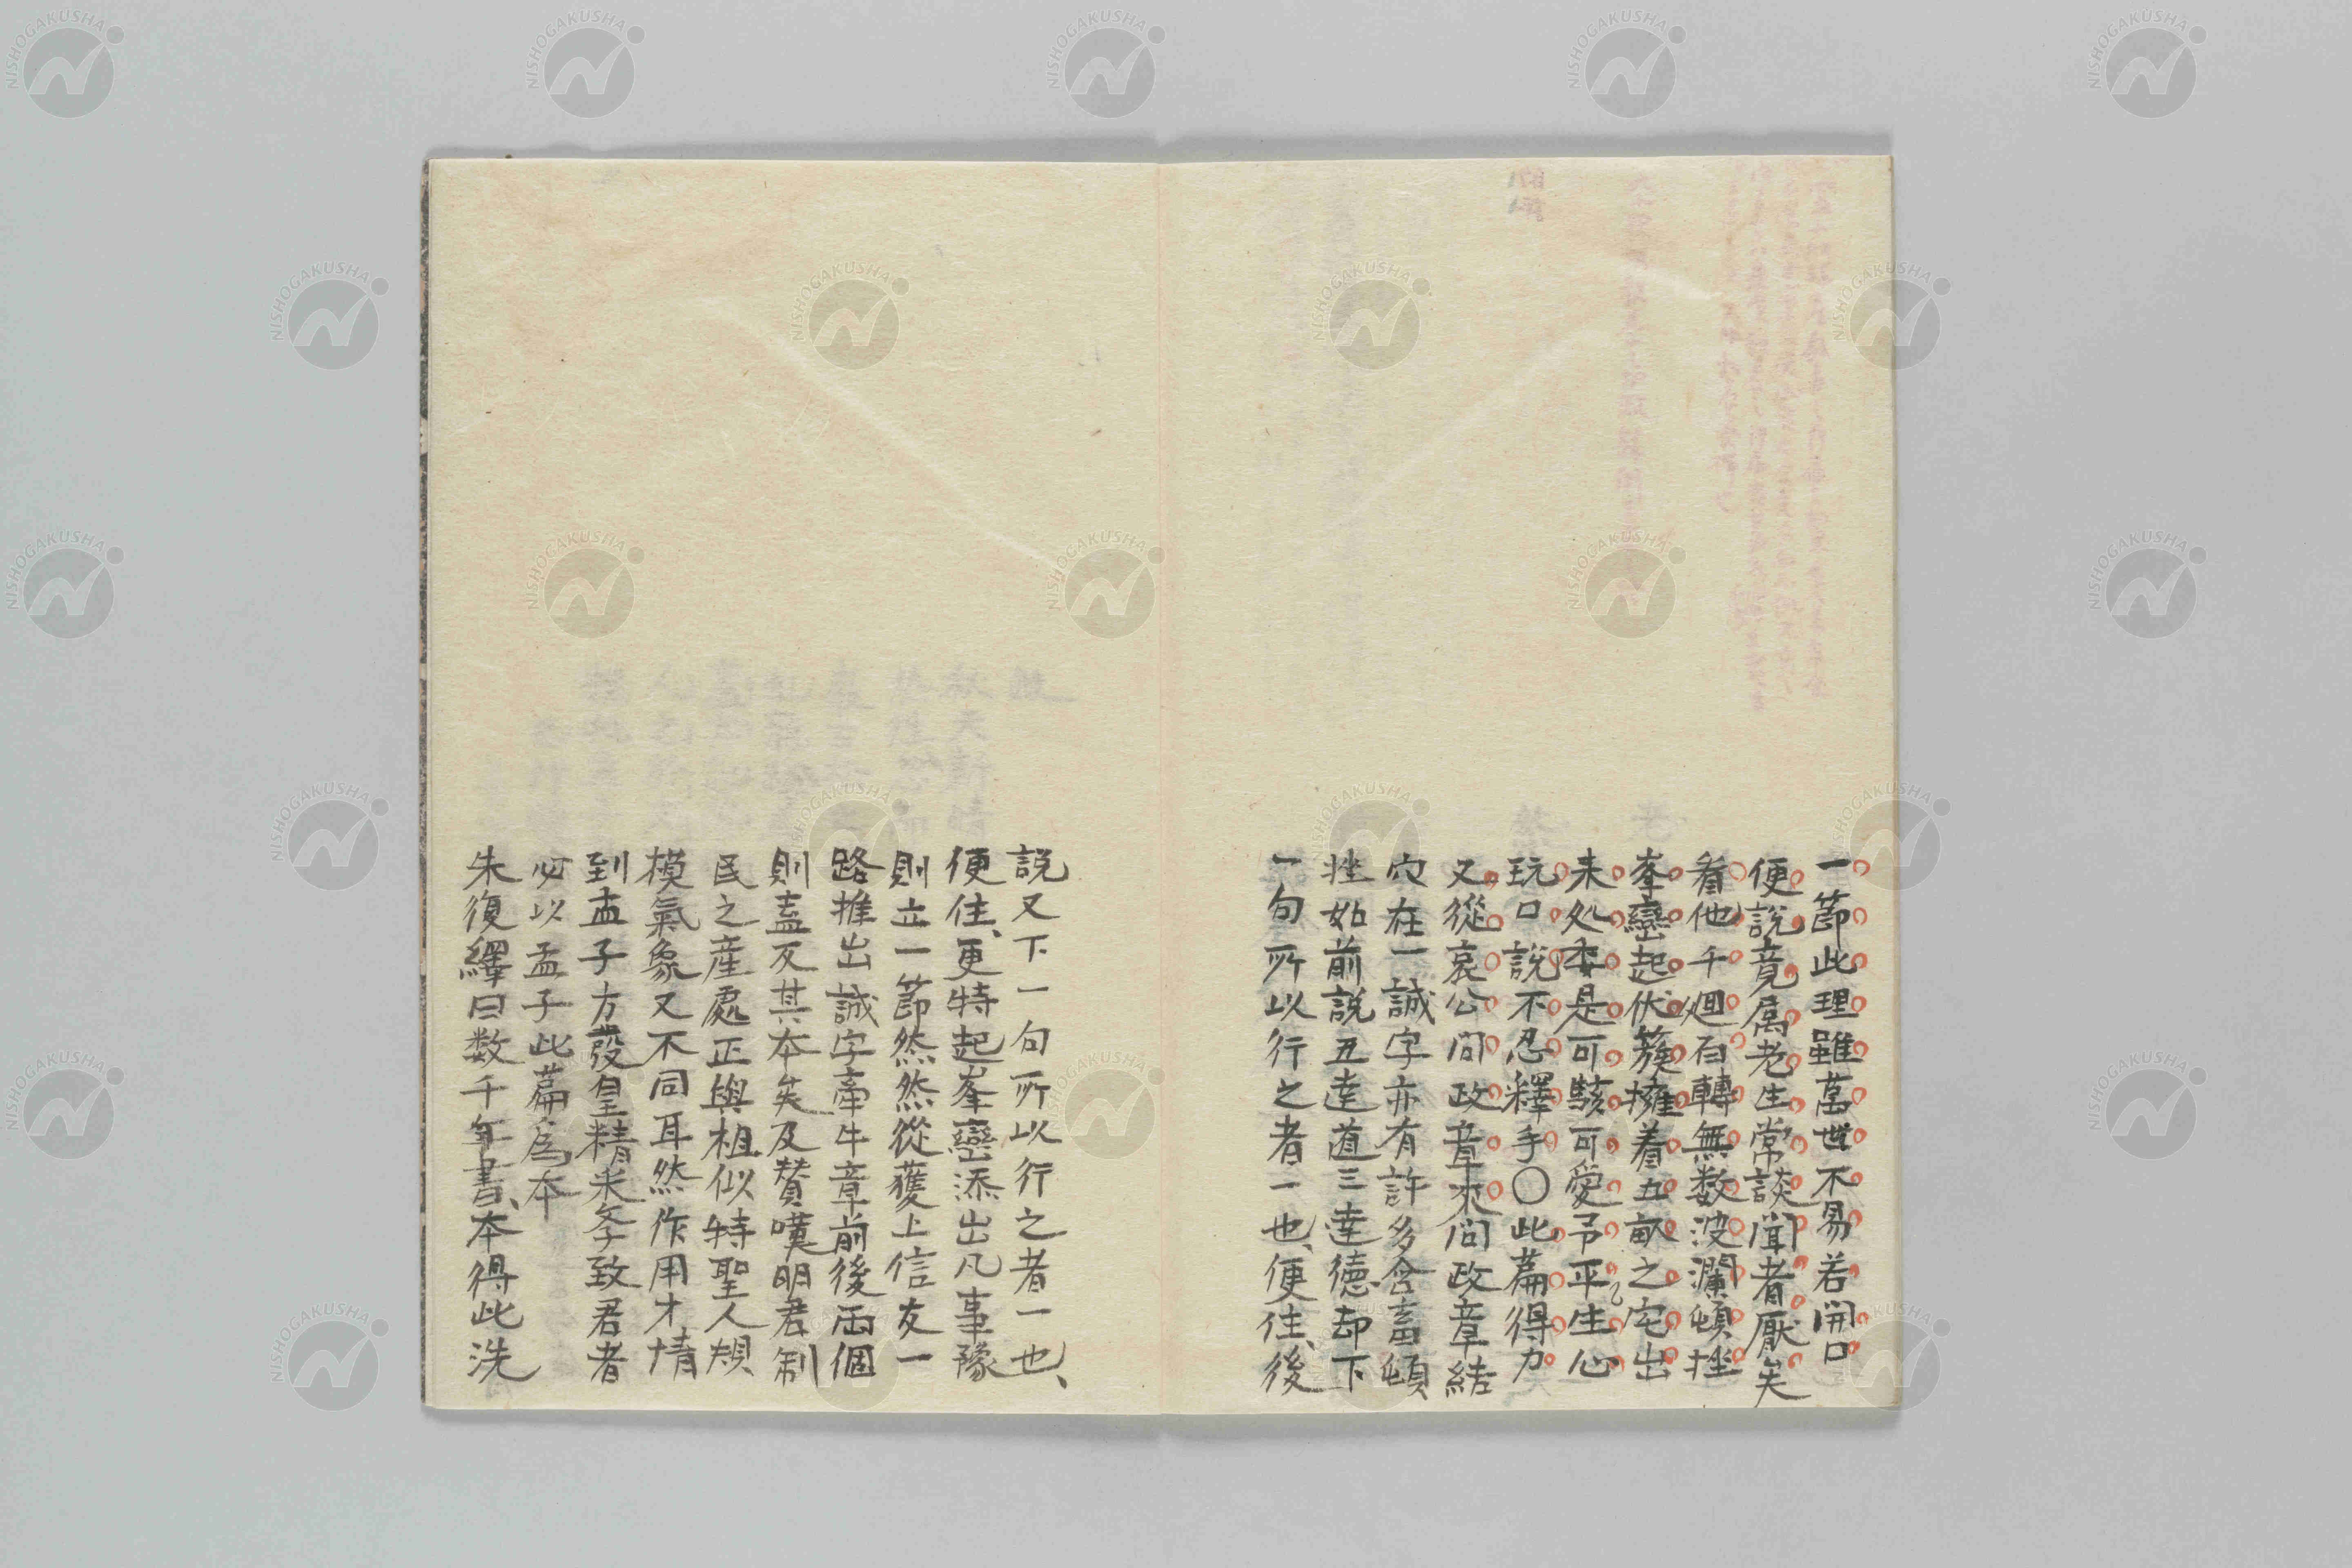 一節此理雖萬世不易若開口
便說竟属老生常談聞者厭矣
看他千廻百轉無数波瀾頓挫
峯巒起伏簇擁着五畝之宅出
来処委是可駭可愛予平生心
玩口說不忍釋手〇此篇得力
又從哀公问政章來问政章結
穴在一誠字亦有許多含畜頓
挫如前説五達道三達德却下
一句所以行之者一也、便住、後
説又下一句所以行之者一也、
便住、更特起峯巒添出凡事豫
則立一節然然從獲上信友一
路推出誠字牽牛章前後両個
則盖反其本矣及賛嘆明君制
民之産處正與相似特聖人規
模氣象又不同耳然作用才情
到孟子方發皇精采矣致君者
必以孟子此篇為本
朱復繹曰数千年書、本得此洗
NISHOGAKUSHA